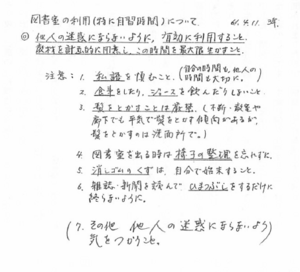 図書室の利用(特に自習時間)について
◎他人の迷惑にならないように、有効に利用すること。
教材を計画的に用意し、この時間を最大限生かすこと。
注意:1. 私語を慎むこと(自分の時間も、他人の時間も大切に。)
2. 食事をしたり、ジュースを飲んだりしないこと。
3. 髪をとかすことは厳禁。(不断、教室や
廊下でも平気で髪をとかす傾向があるが、
髪をとかすのは洗面所で。)
4. 図書室を出る時は椅子の整理を忘れずに。
5. 消しゴムのくずは、自分で始末すること。
6. 雑誌・新聞を読んでひまつぶしをするだけに
終らないように。
(7. その他 他人の迷惑にならないよう
気をつかうこと。